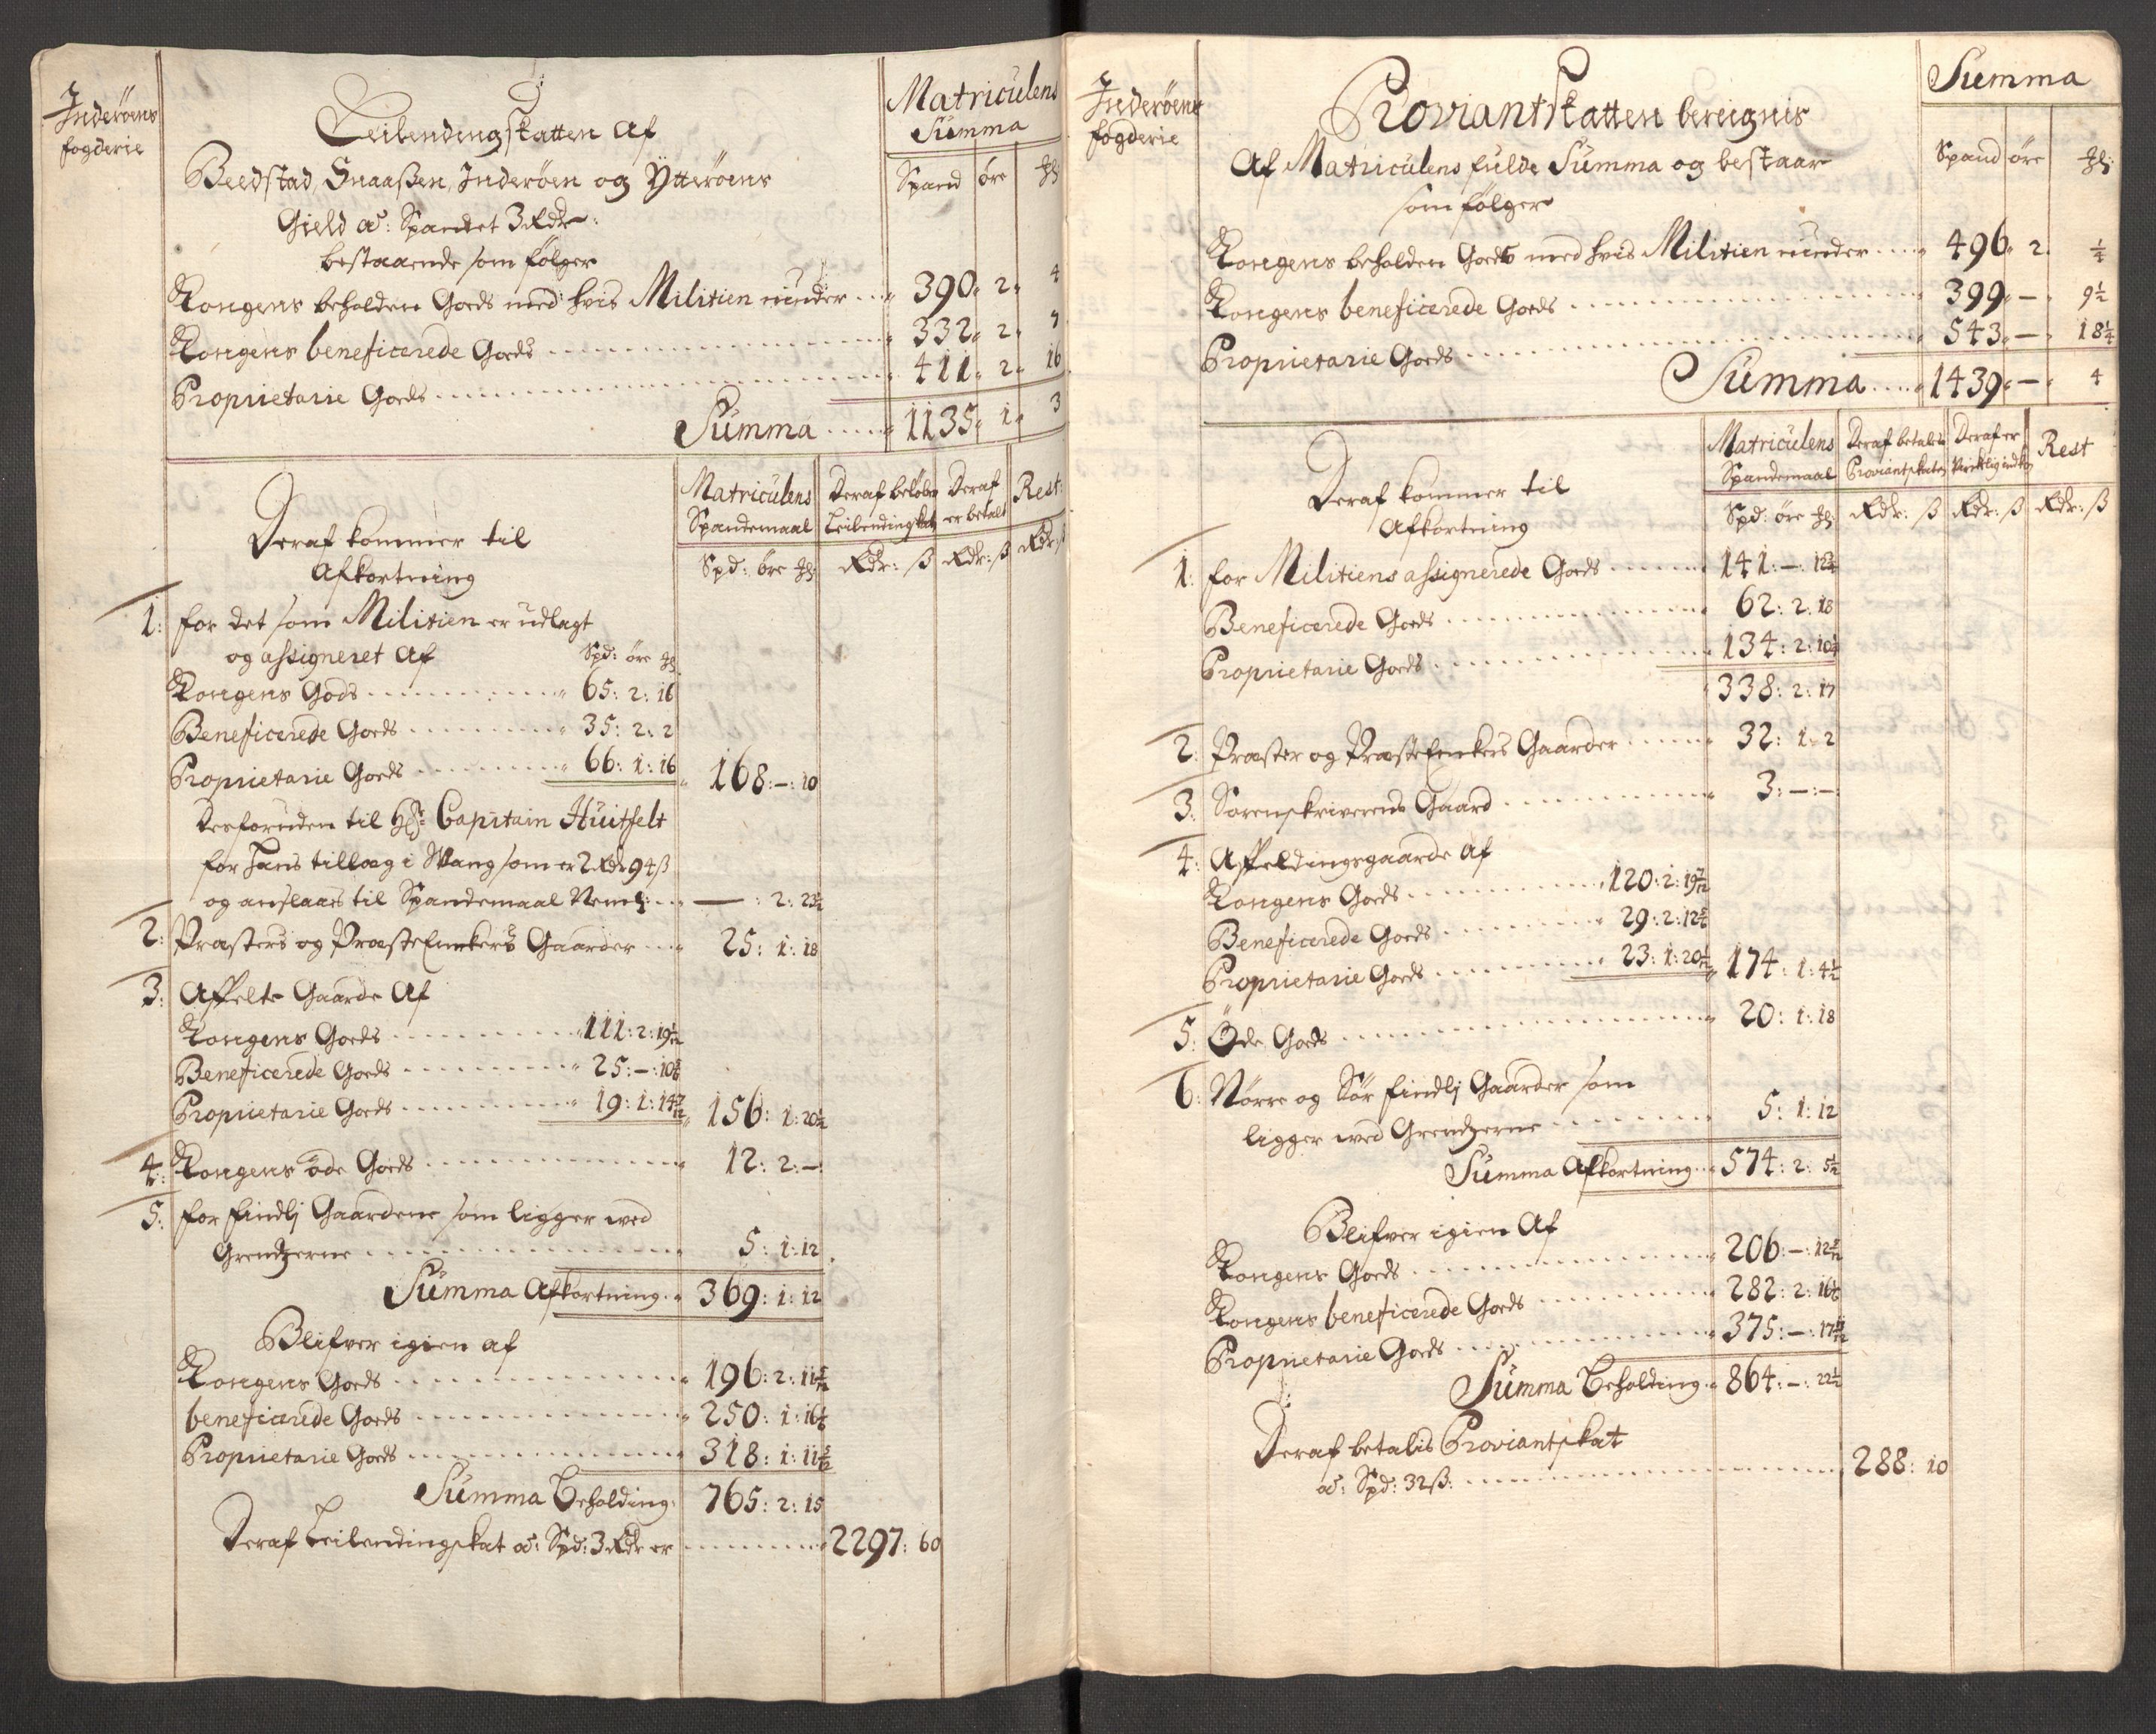 Inderöens
fogderie
Leilendingskatten Af
Beedstad, Snaaßen, Inderöen og Ytteröens
Gield â: Spandet 3 Rdr:
bestaaende som fölger
Matriculens
Summa
Spand öre
Kongens beholden Goeds med hvis Militien nunder 390 2 4
Kongens beneficerede Goeds 332 2 7
Proprietarie Goeds 411 2 16
Summa 1135 1 3
Deraf kommer til
Afkortning
Matriculens Spandemaal
Deraf beløber Leilendingskat
Deraf er betalt
Rest:
Spd: öre Rdr: ß Rdr: ß Rdr ß
1: for det som Militien er udlagt
og assigneret Af Spd: öre
Kongens Gods 65: 2: 16
Beneficerede Goeds 35: 2: 2
Proprietarie Goeds 66: 1: 16 168: –: 10
Desforuden til Capitain Huitfelt
for hans tillæg i Wang som er 2 Rdr 94 ß
og anslaaes til Spandemaal Neml: — : 2: 23½
2: Præsters og PræsteEnckers Gaarder 25: 1: 18
3: Affelte Gaarde Af
Kongens Goeds 111: 2: 19
Beneficerede Goeds 25: –: 10
Proprietarie Goeds 19: 1: 14 156: 1: 20½
4: Kongens öde Goeds 12: 2: –
5: for findlj Gaardene som ligger wed
Grendzerne 5: 1: 12
Summa Afkortning 369: 1: 12
Blifver igien af
Kongens Goeds 196: 2: 11
beneficerede Goeds 250: 1: 16
Proprietarie Goeds 318: 1: 11
Summa Beholding 765: 2: 15
Deraf Leilendingskat â: Spd: 3 Rdr er 2297: 60
Inderöens
fogderie
Proviantskatten bereignis
Af Matriculens fulde Summa og bestaar
som fölger
Summa
Spand öre
Kongens beholden Goeds med hvis Militien nunder 496 2 ¼
Kongens beneficerede Goeds 399 – 9½
Proprietarie Goeds 543 – 18¼
Summa 1439 – 4
Deraf kommer til
Afkortning
Matriculens Spandemaal
Deraf betalis Proviantskaten
Deraf er
Rest
Spd: öre Rdr: ß Rdr: ß Rdr: ß
1: for Militiens assignerede Goeds 141: –: 12¾
Beneficerede Goeds 62: 2: 18
Proprietarie Goeds 134: 2: 10¼
338: 2: 17
2: Præster og PræsteEnckers Gaarder 32: 1: 2
3: Sorenskriverens Gaard 3: –: –
4: Affeldingsgaarde Af
Kongens Goeds 120: 2: 19
Beneficerede Goeds 29: 2: 12
Proprietarie Goeds 23: 1: 20 174: 1: 4½
5: Öde Goeds 20: 1: 18
6: Nörre og Sör findlj Gaarder som
ligger wed Grendzerne 5: 1: 12
Summa Afkortning 574: 2: 5½
Blifver igien Af
Kongens Goeds 206: –: 12
Kongens beneficerede Goeds 282: 2: 16
Proprietarie Goeds 375: –: 17
Summa Beholding 864: –: 22½
Deraf betalis Proviantskat
â: Spd: 32 ß: 288: 10